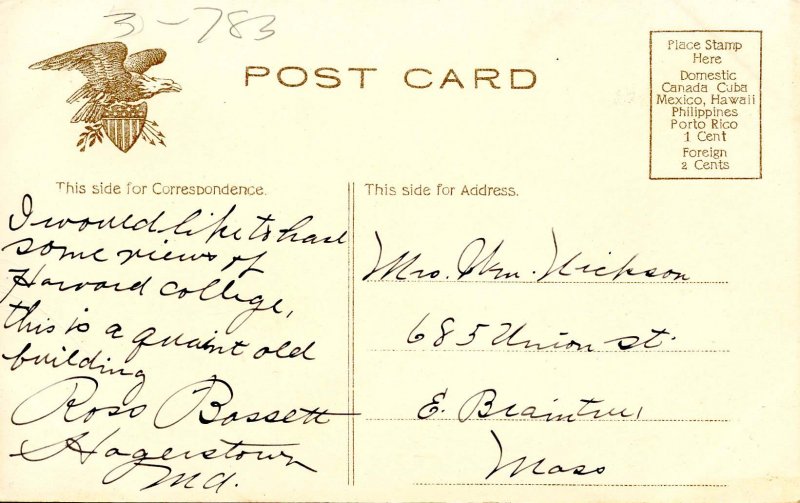 3-783
POST CARD
Place Stamp
Here
Domestic
Canada Cuba
Mexico, Hawaii
Philippines
Porto Rico
1 Cent
Foreign
2 Cents
This side for Correspondence.
I would like to have
some views of
Harvard college,
this is a quaint old
building
Ross Bossett
Hagerstown
Md.
This side for Address.
Mrs. Wm. Hickson
685 Union St.
E. Braintree,
Mass